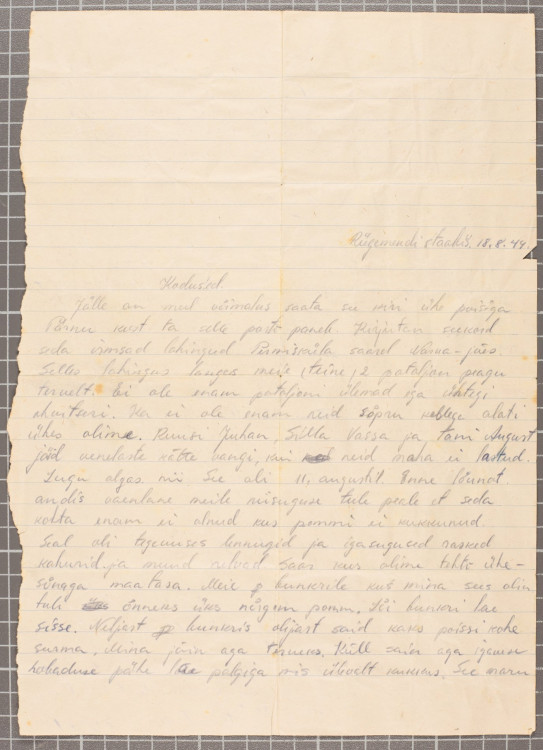 Rügemendi staabis. 18.8.44.
Kodused.
Jälle on mul võimalus saata su kiri ühe poisiga
Pärnu kust ta selle posti paneb. Kirjutan
seda irmsad lahingud Permisküla saarel Narva-jões.
Selles lahingus langes meie (teine) 2 pataljon peagu
tervelt. Ei ole enam pataljoni ülemad ega ühtegi
ohvitseri. Ka ei ole enam neid sõpru kellega alati
ühes olime. Ruusi Juhan, Silla Vassa ja Tomi August
jäid venelaste kätte vangi, kui neid maha ei lastud.
Lugu algas nii See oli 11. augustil. Enne lõunat
andis vaenlane meile niisuguse tule peale et seda
kohta enam ei olnud kus pommi ei kukkunud.
Seal oli tegevuses lennugid ja igasugused rasked
kahurid ja muud relvad. Saar kus olime tehti ühe-
sõnaga maatasa. Meie punkrile kus mina sees olin
tuli õnneks üks nõrgem pomm. Lõi bunkri lae
sisse. Neljast bunkris olijast said kaks poissi kohe
surma. Mina jäin aga terveks. Küll sain aga igavese
hobaduse pähe lae palgiga mis ülevalt kukkus. See maru